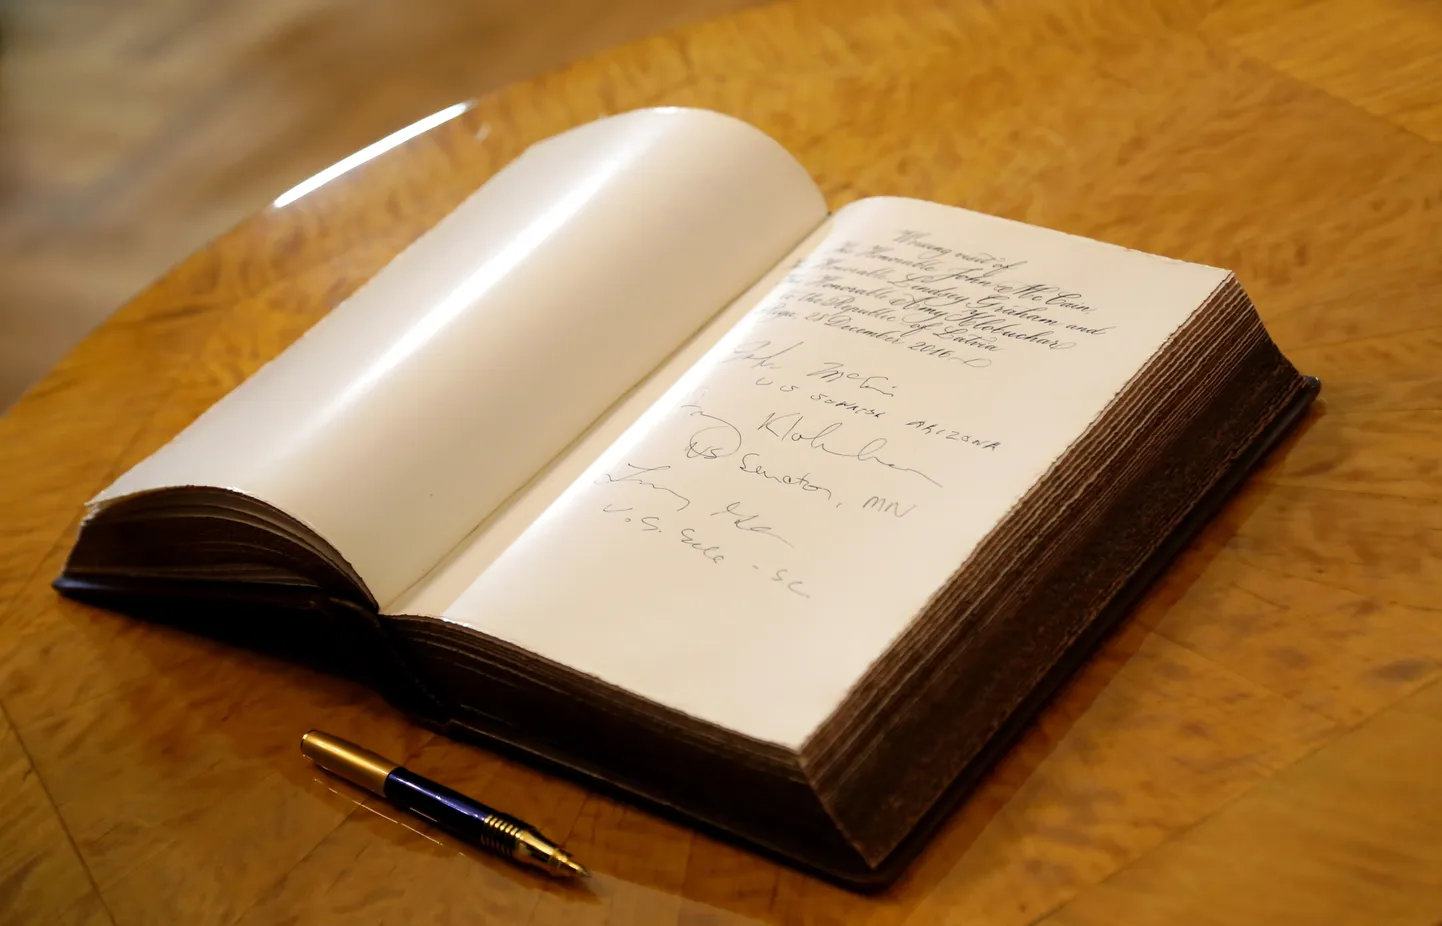 Working visit of
the Honorable John McCain,
the Honorable Lindsey Graham and
the Honorable Amy Klobuchar
to the Republic of Latvia
Riga, 28 December 2016
John McCain
US SENATOR ARIZONA
Amy Klobuchar
US Senator, MN
Lindsey Graham
U.S. Senate - SC